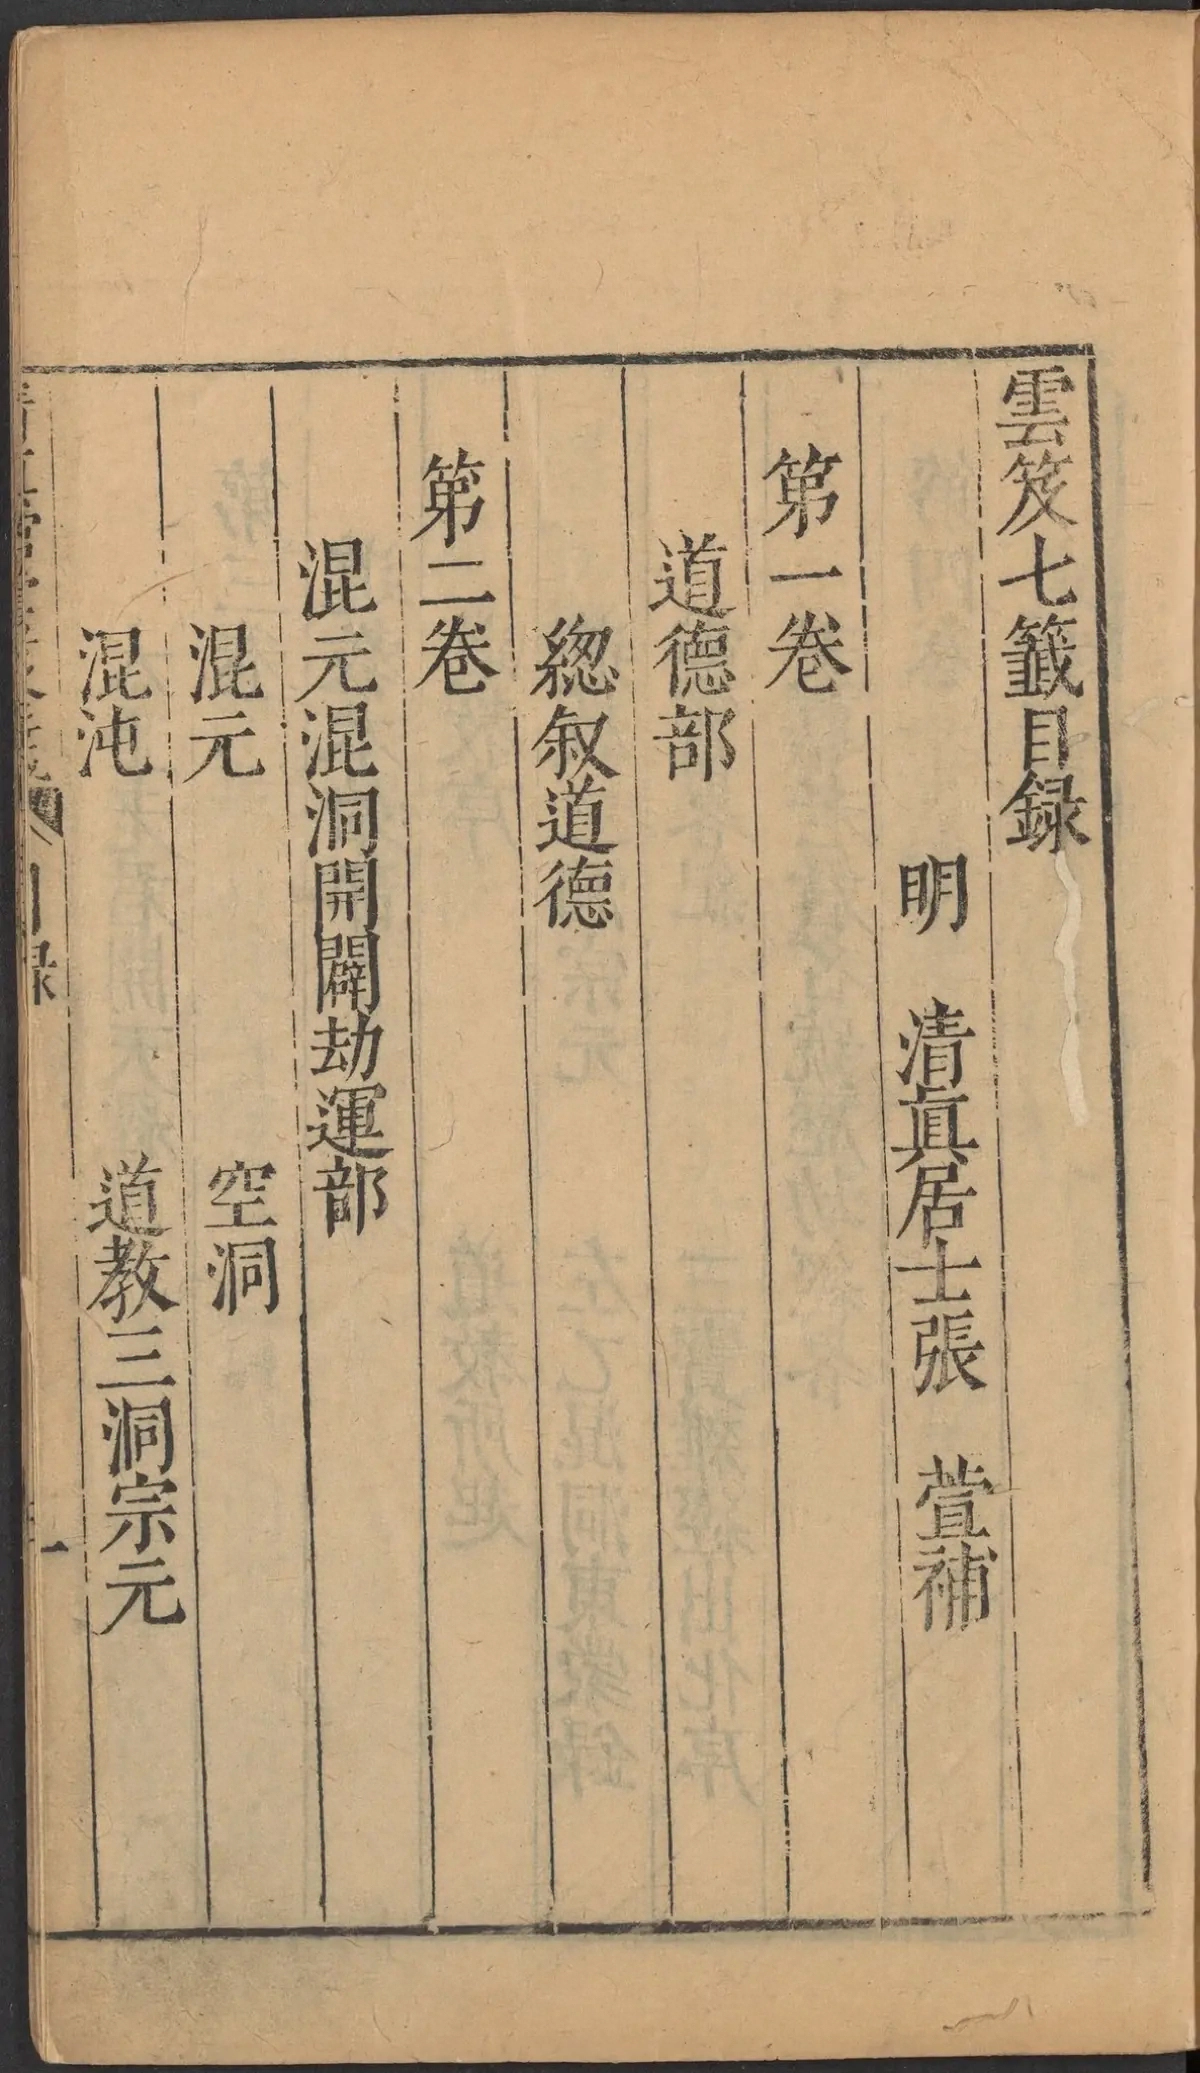 雲笈七籤目録
明　清真居士張　萱補
第一卷
道德部
緫叙道德
第二卷
混元混洞開闢劫運部
混元　空洞
混沌　道教三洞宗元